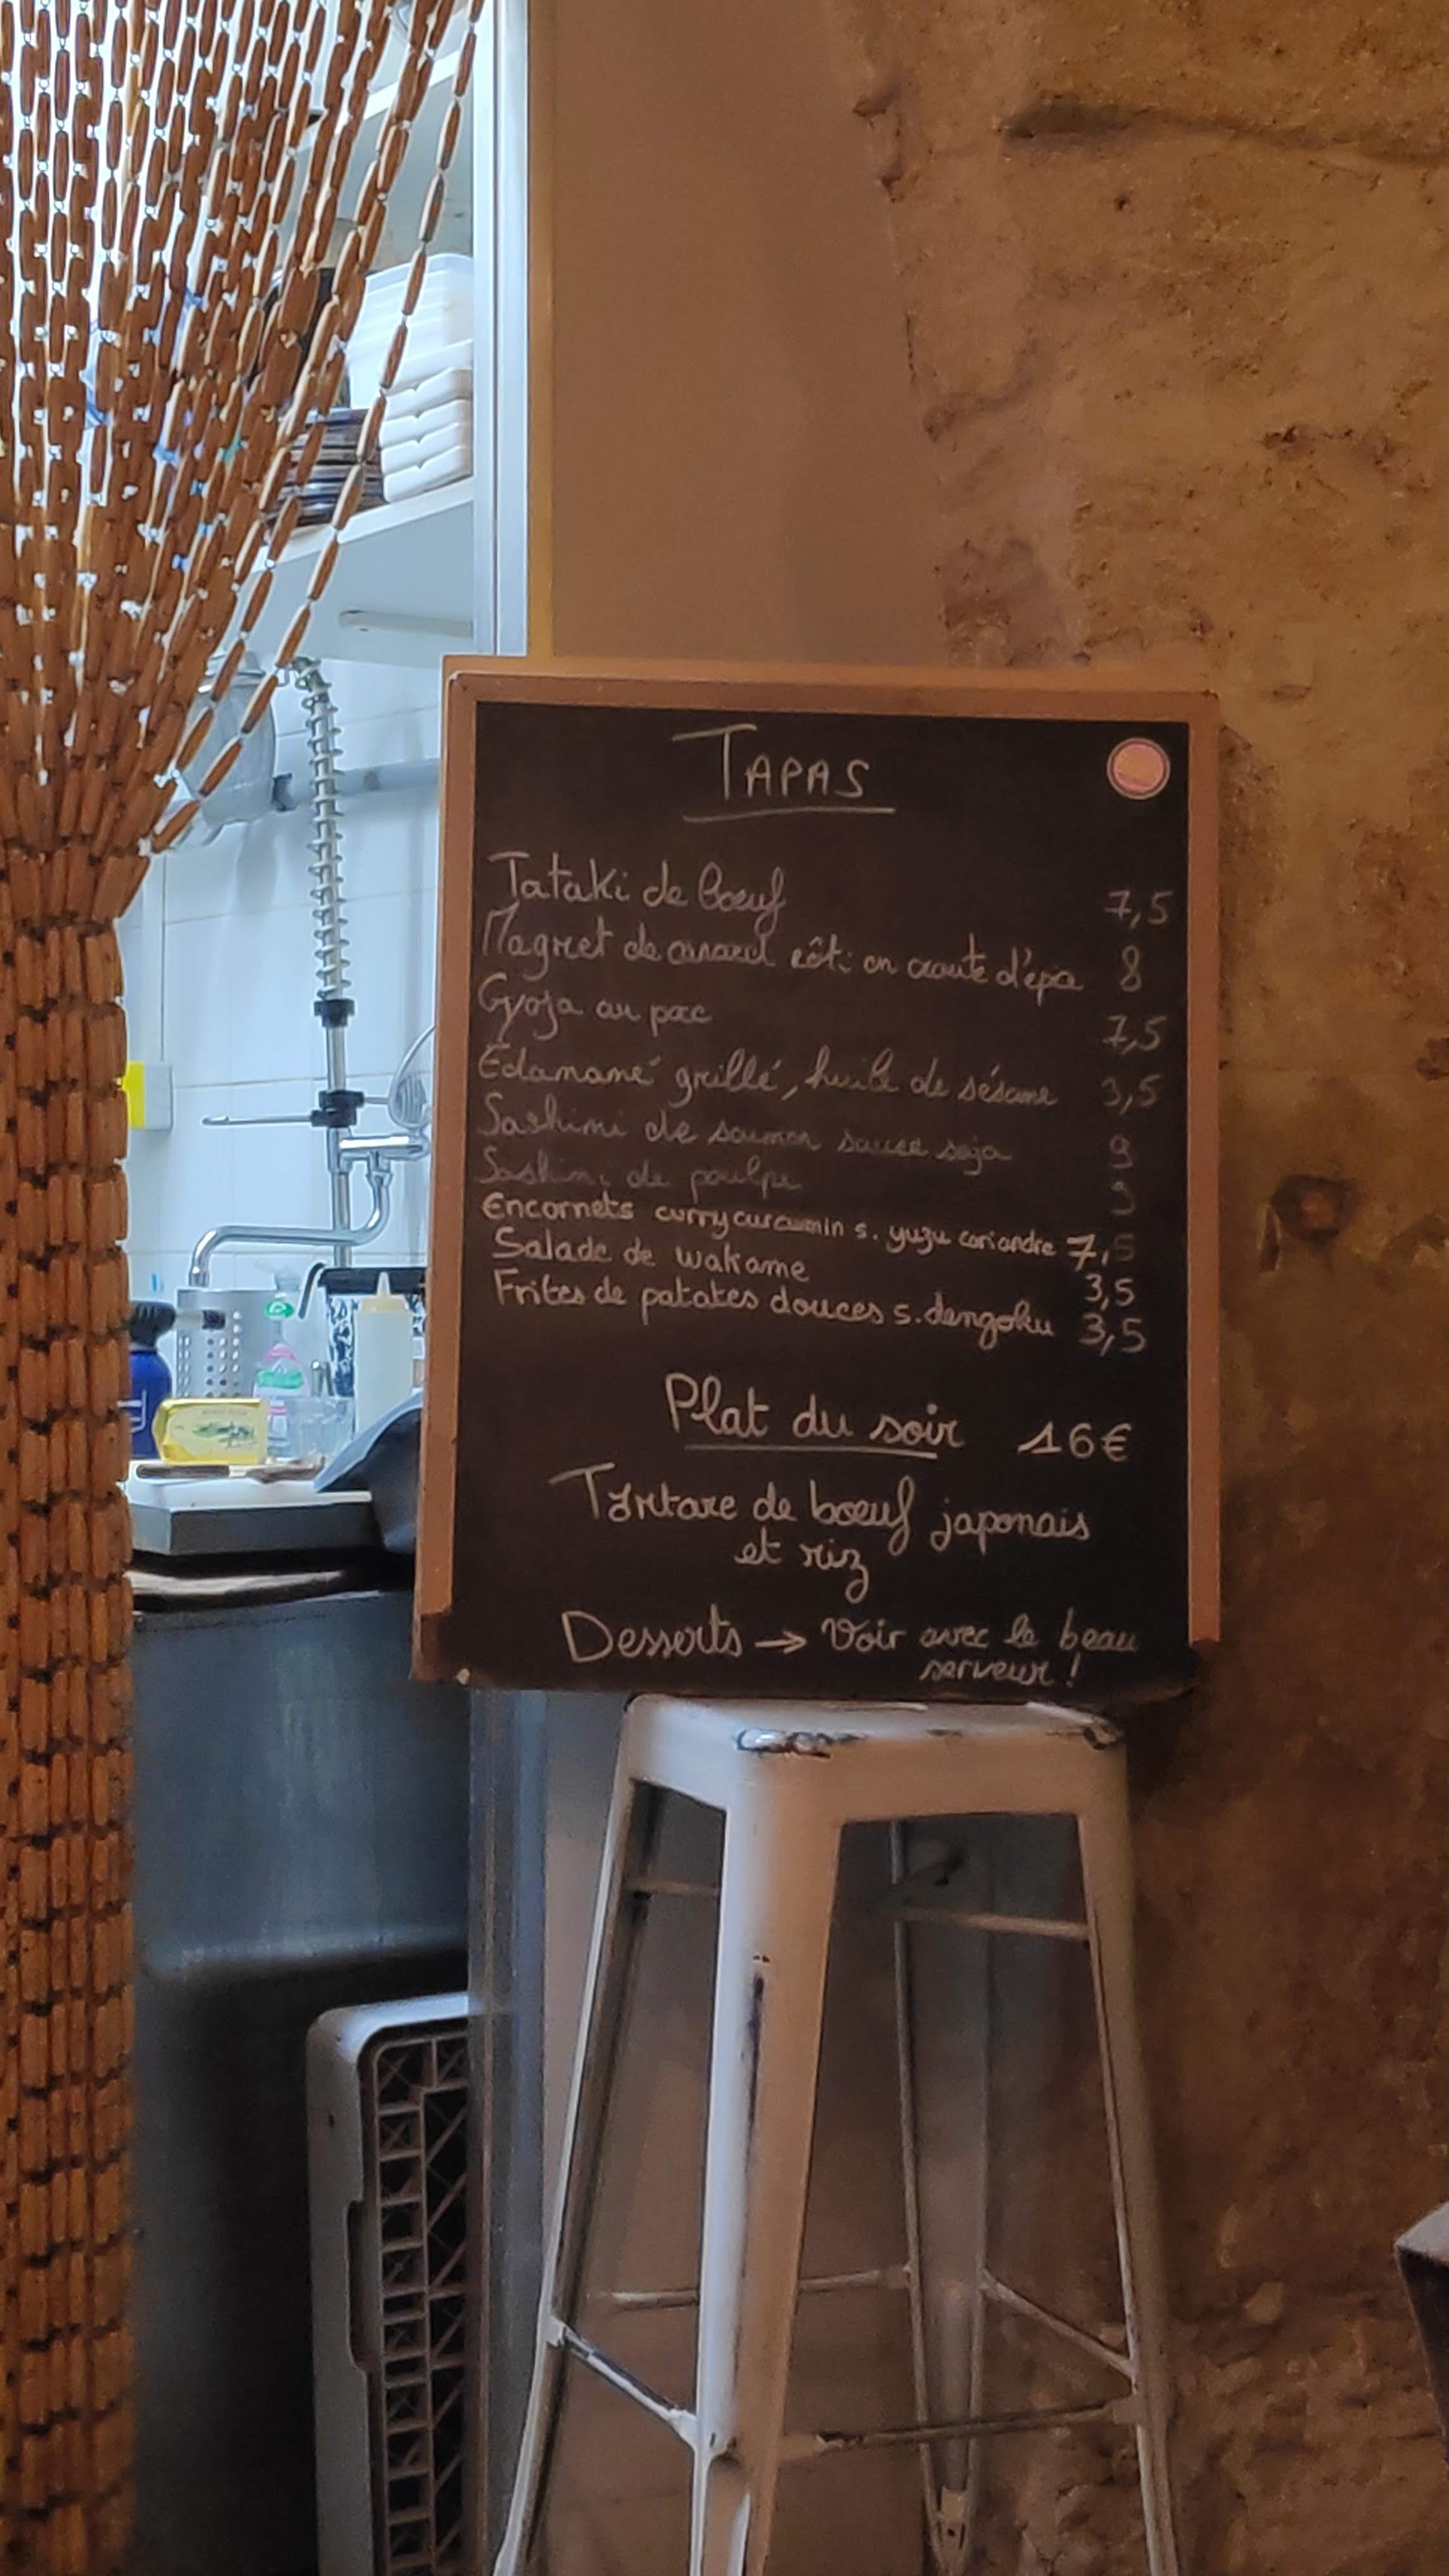 TAPAS
Tataki de bœuf 7,5
Magret de canard rôti en croute d'épa 8
Gyoza au porc 7,5
Edamamé grillé, huile de sésame 3,5
Sashimi de saumon sauce soja 9
Sashimi de poulpe 9
Encornets curry curcumin s. yuzu coriandre 7,5
Salade de wakame 3,5
Frites de patates douces s. dengaku 3,5
Plat du soir 16€
Tartare de bœuf japonais
et riz
Desserts → Voir avec le beau
serveur !